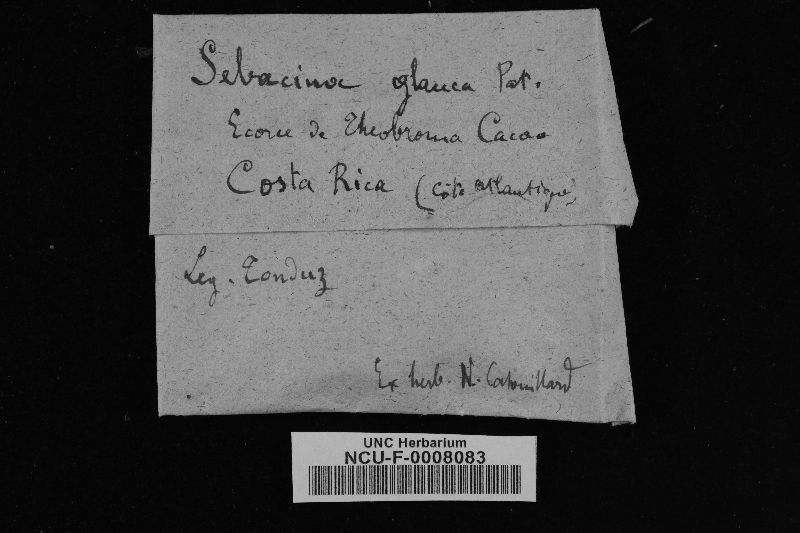 Sebacina glauca Pat.
Ecorce de Theobroma Cacao
Costa Rica (Côte Atlantique)
Leg. Tonduz
Ex herb. N. Patouillard
UNC Herbarium
NCU-F-0008083